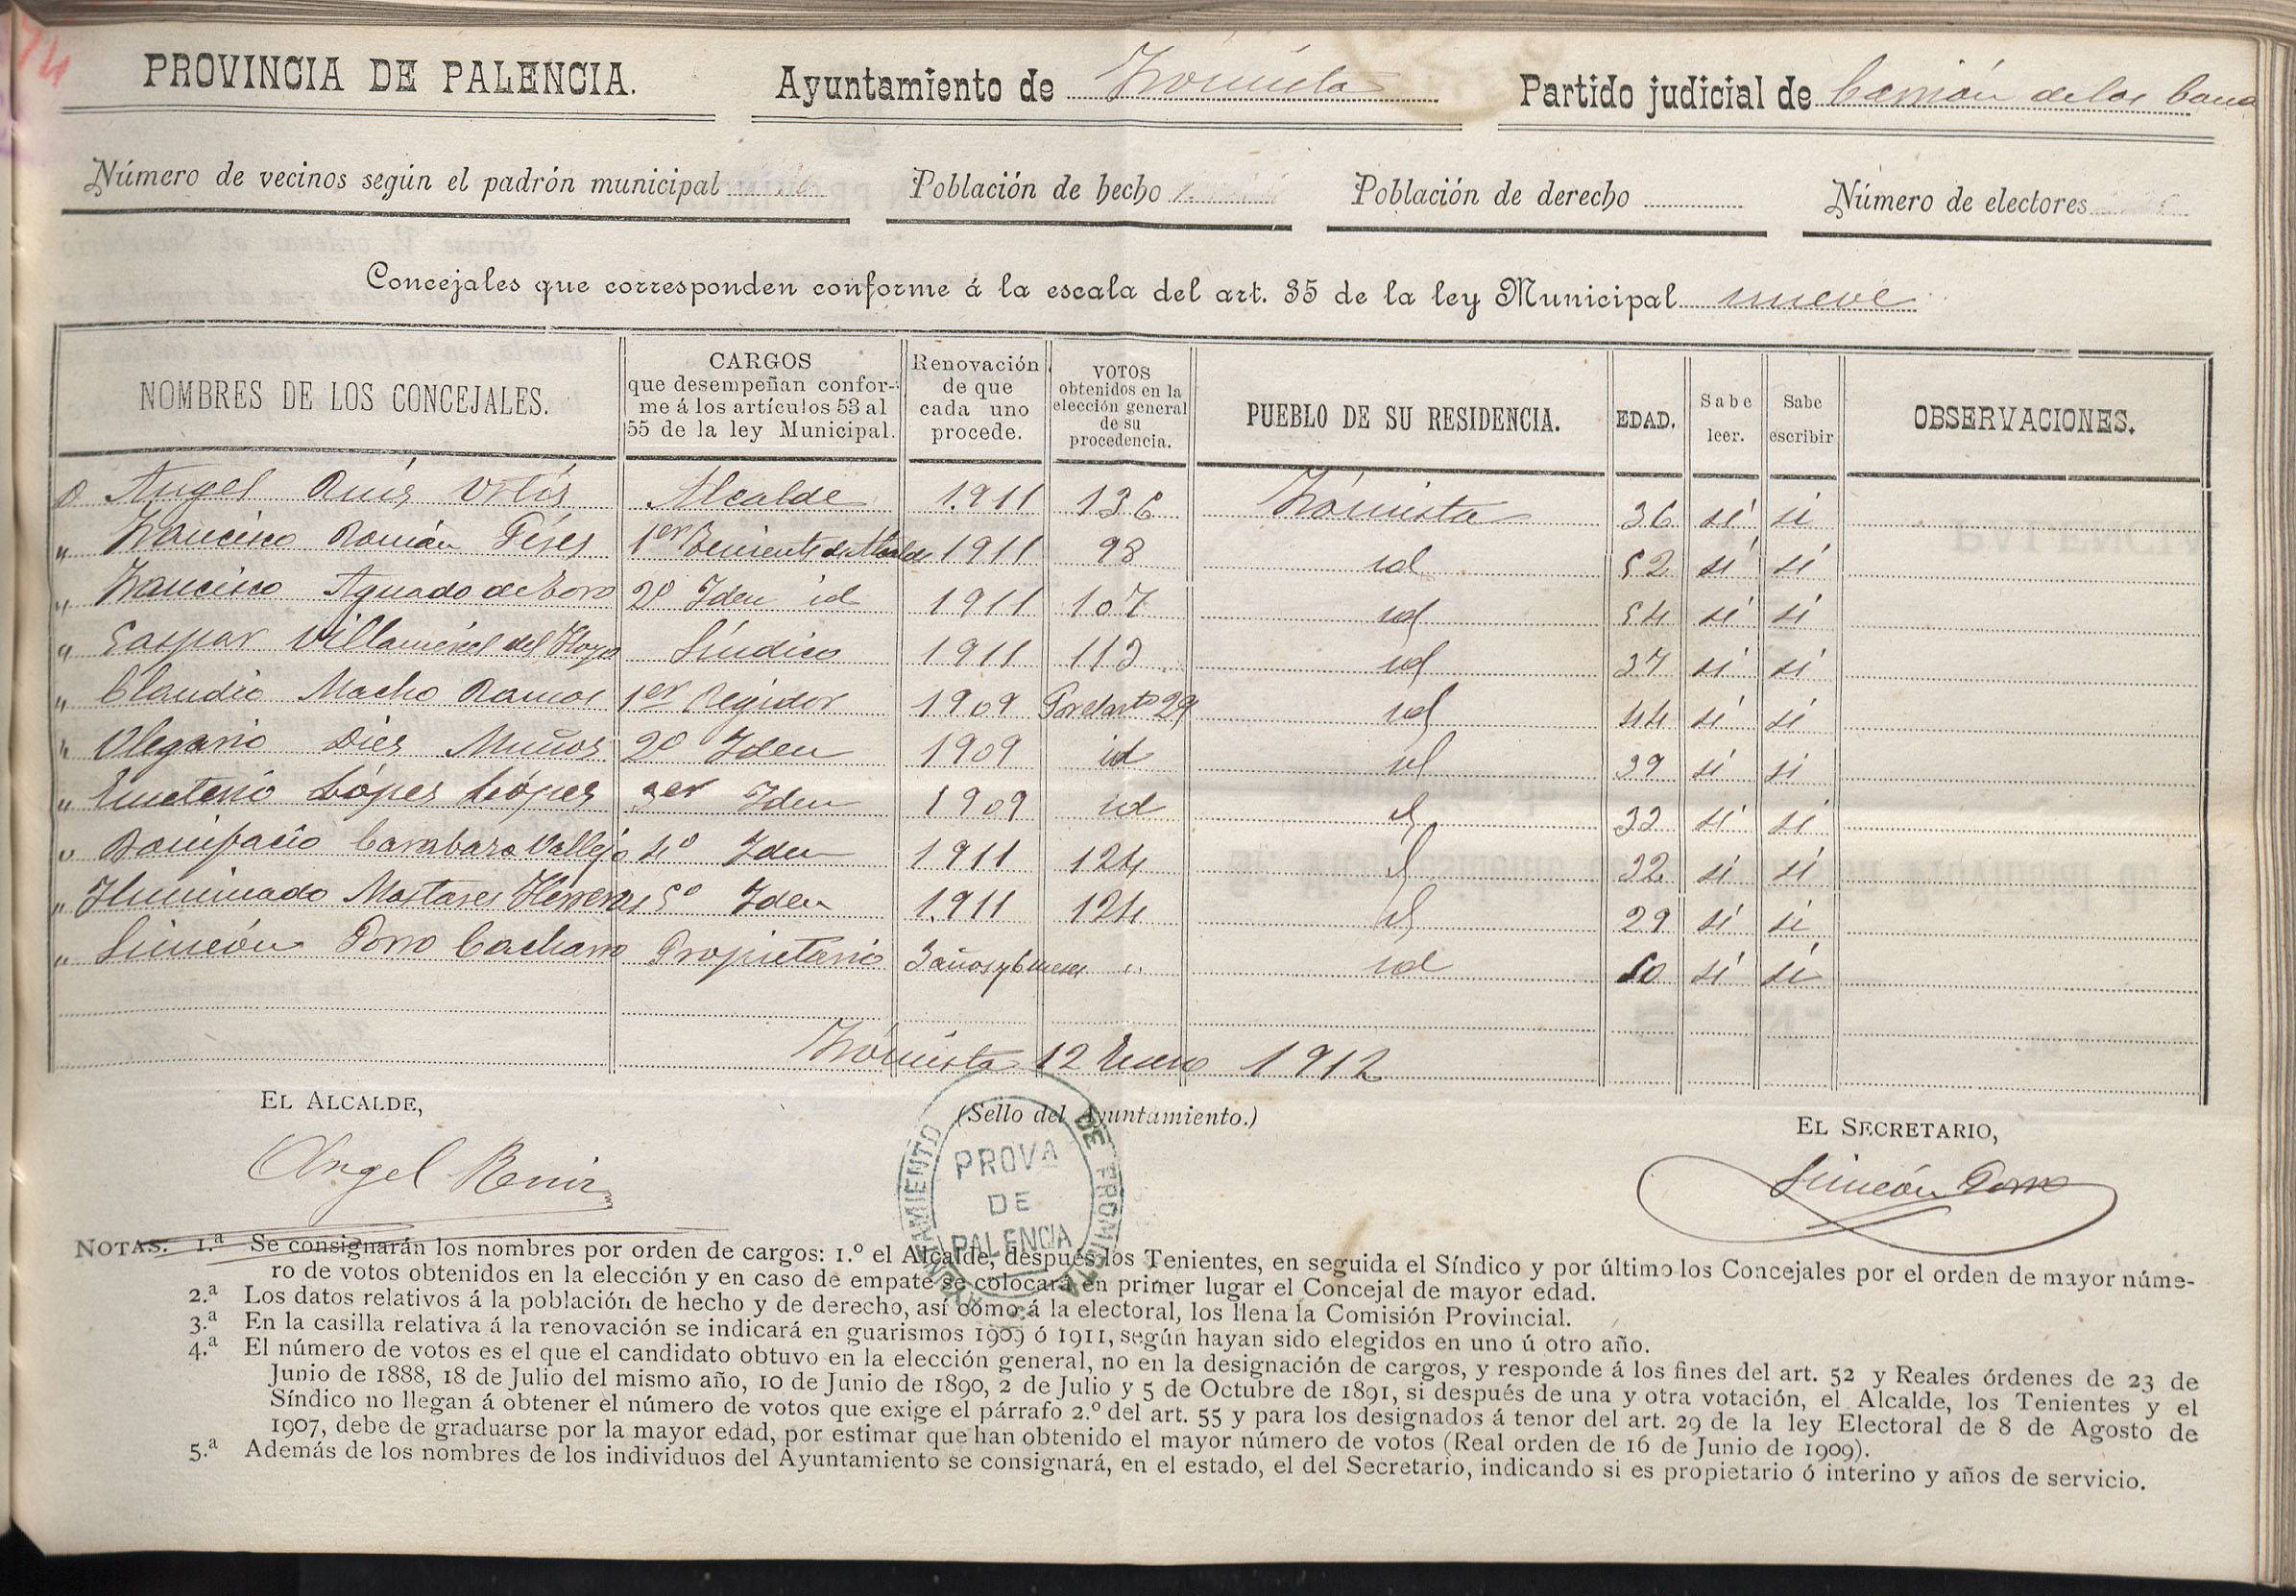 74
PROVINCIA DE PALENCIA. Ayuntamiento de Frómista Partido judicial de Carrión de los Cond
Número de vecinos según el padrón municipal Población de hecho Población de derecho Número de electores
Concejales que corresponden conforme á la escala del art. 35 de la ley Municipal nueve
NOMBRES DE LOS CONCEJALES. CARGOS que desempeñan conforme á los artículos 53 al 55 de la ley Municipal. Renovación de que cada uno procede. VOTOS obtenidos en la elección general de su procedencia. PUEBLO DE SU RESIDENCIA. EDAD. Sabe leer. Sabe escribir OBSERVACIONES.
D Angel Ruiz Ortiz Alcalde 1911 136 Frómista 36 si si
" Francisco Román Pérez 1er Teniente de Alcalde 1911 98 id 52 si si
" Francisco Aguado de Toro 2º Iden id 1911 107 id 54 si si
" Gaspar Villamediel del Hoyo Síndico 1911 113 id 37 si si
" Claudio Macho Ramos 1er Regidor 1909 Por el arto 29 id 44 si si
" Olegario Diez Muñoz 2º Iden 1909 id id 39 si si
" Emeterio López López 3er Iden 1909 id id 33 si si
" Bonifacio Carabaza Vallejo 4º Iden 1911 124 id 32 si si
" Iluminado Mostares Herreros 5º Iden 1911 124 id 29 si si
" Simeón Porro Cacharro Propietario 3 años y 6 meses " id 50 si si
Frómista 12 Enero 1912
EL ALCALDE, (Sello del Ayuntamiento.) EL SECRETARIO,
Angel Ruiz
Simeón Porro
AYUNTAMIENTO DE FROMISTA
PROVA
DE
PALENCIA
NOTAS. 1.ª Se consignarán los nombres por orden de cargos: 1.º el Alcalde, después los Tenientes, en seguida el Síndico y por último los Concejales por el orden de mayor núme-
ro de votos obtenidos en la elección y en caso de empate se colocará en primer lugar el Concejal de mayor edad.
2.ª Los datos relativos á la población de hecho y de derecho, así como á la electoral, los llena la Comisión Provincial.
3.ª En la casilla relativa á la renovación se indicará en guarismos 1909 ó 1911, según hayan sido elegidos en uno ú otro año.
4.ª El número de votos es el que el candidato obtuvo en la elección general, no en la designación de cargos, y responde á los fines del art. 52 y Reales órdenes de 23 de
Junio de 1888, 18 de Julio del mismo año, 10 de Junio de 1890, 2 de Julio y 5 de Octubre de 1891, si después de una y otra votación, el Alcalde, los Tenientes y el
Síndico no llegan á obtener el número de votos que exige el párrafo 2.º del art. 55 y para los designados á tenor del art. 29 de la ley Electoral de 8 de Agosto de
1907, debe de graduarse por la mayor edad, por estimar que han obtenido el mayor número de votos (Real orden de 16 de Junio de 1909).
5.ª Además de los nombres de los individuos del Ayuntamiento se consignará, en el estado, el del Secretario, indicando si es propietario ó interino y años de servicio.